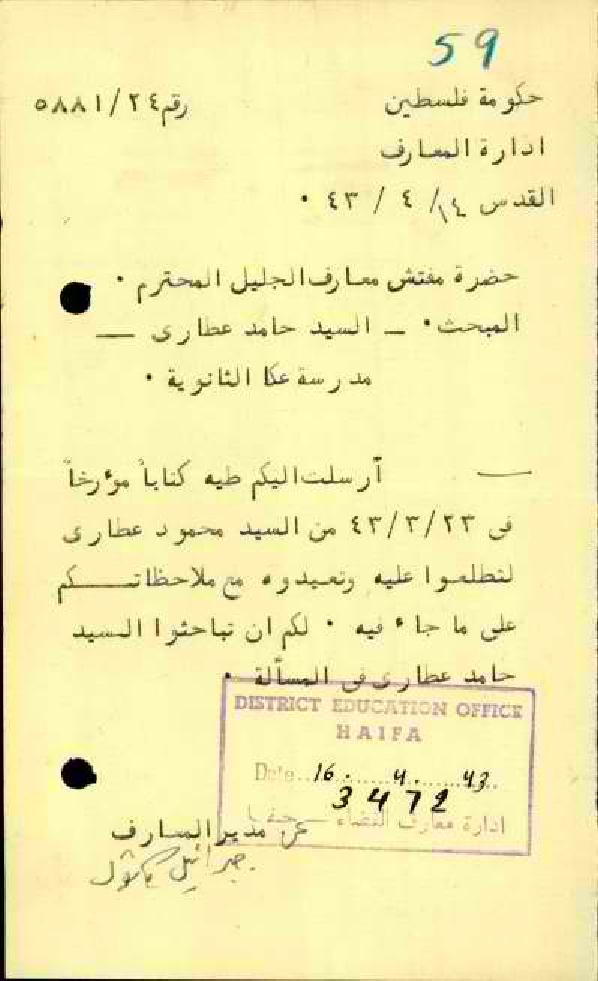 59
حكومة فلسطين رقم ٢٤/٥٨٨١
ادارة المعارف
القدس ١٤/ ٤ / ٤٣ ٠
حضرة مفتش معارف الجليل المحترم ٠
المبحث ٠ ــ السيد حامد عطارى ــ
مدرسة عكا الثانوية ٠
أرسلت اليكم طيه كتاباً مؤرخاً
فى ٤٣/٣/٢٣ من السيد محمود عطارى
لتطلعوا عليه وتعيدوه مع ملاحظاتــــكم
على ما جاء فيه ٠ لكم ان تباحثوا السيد
حامد عطارى فى المسألة ٠
DISTRICT EDUCATION OFFICE
HAIFA
Date 16. 4. 43
3472
ادارة معارف القضاء ــ حيفا
عن مدير المعارف
جبرائيل